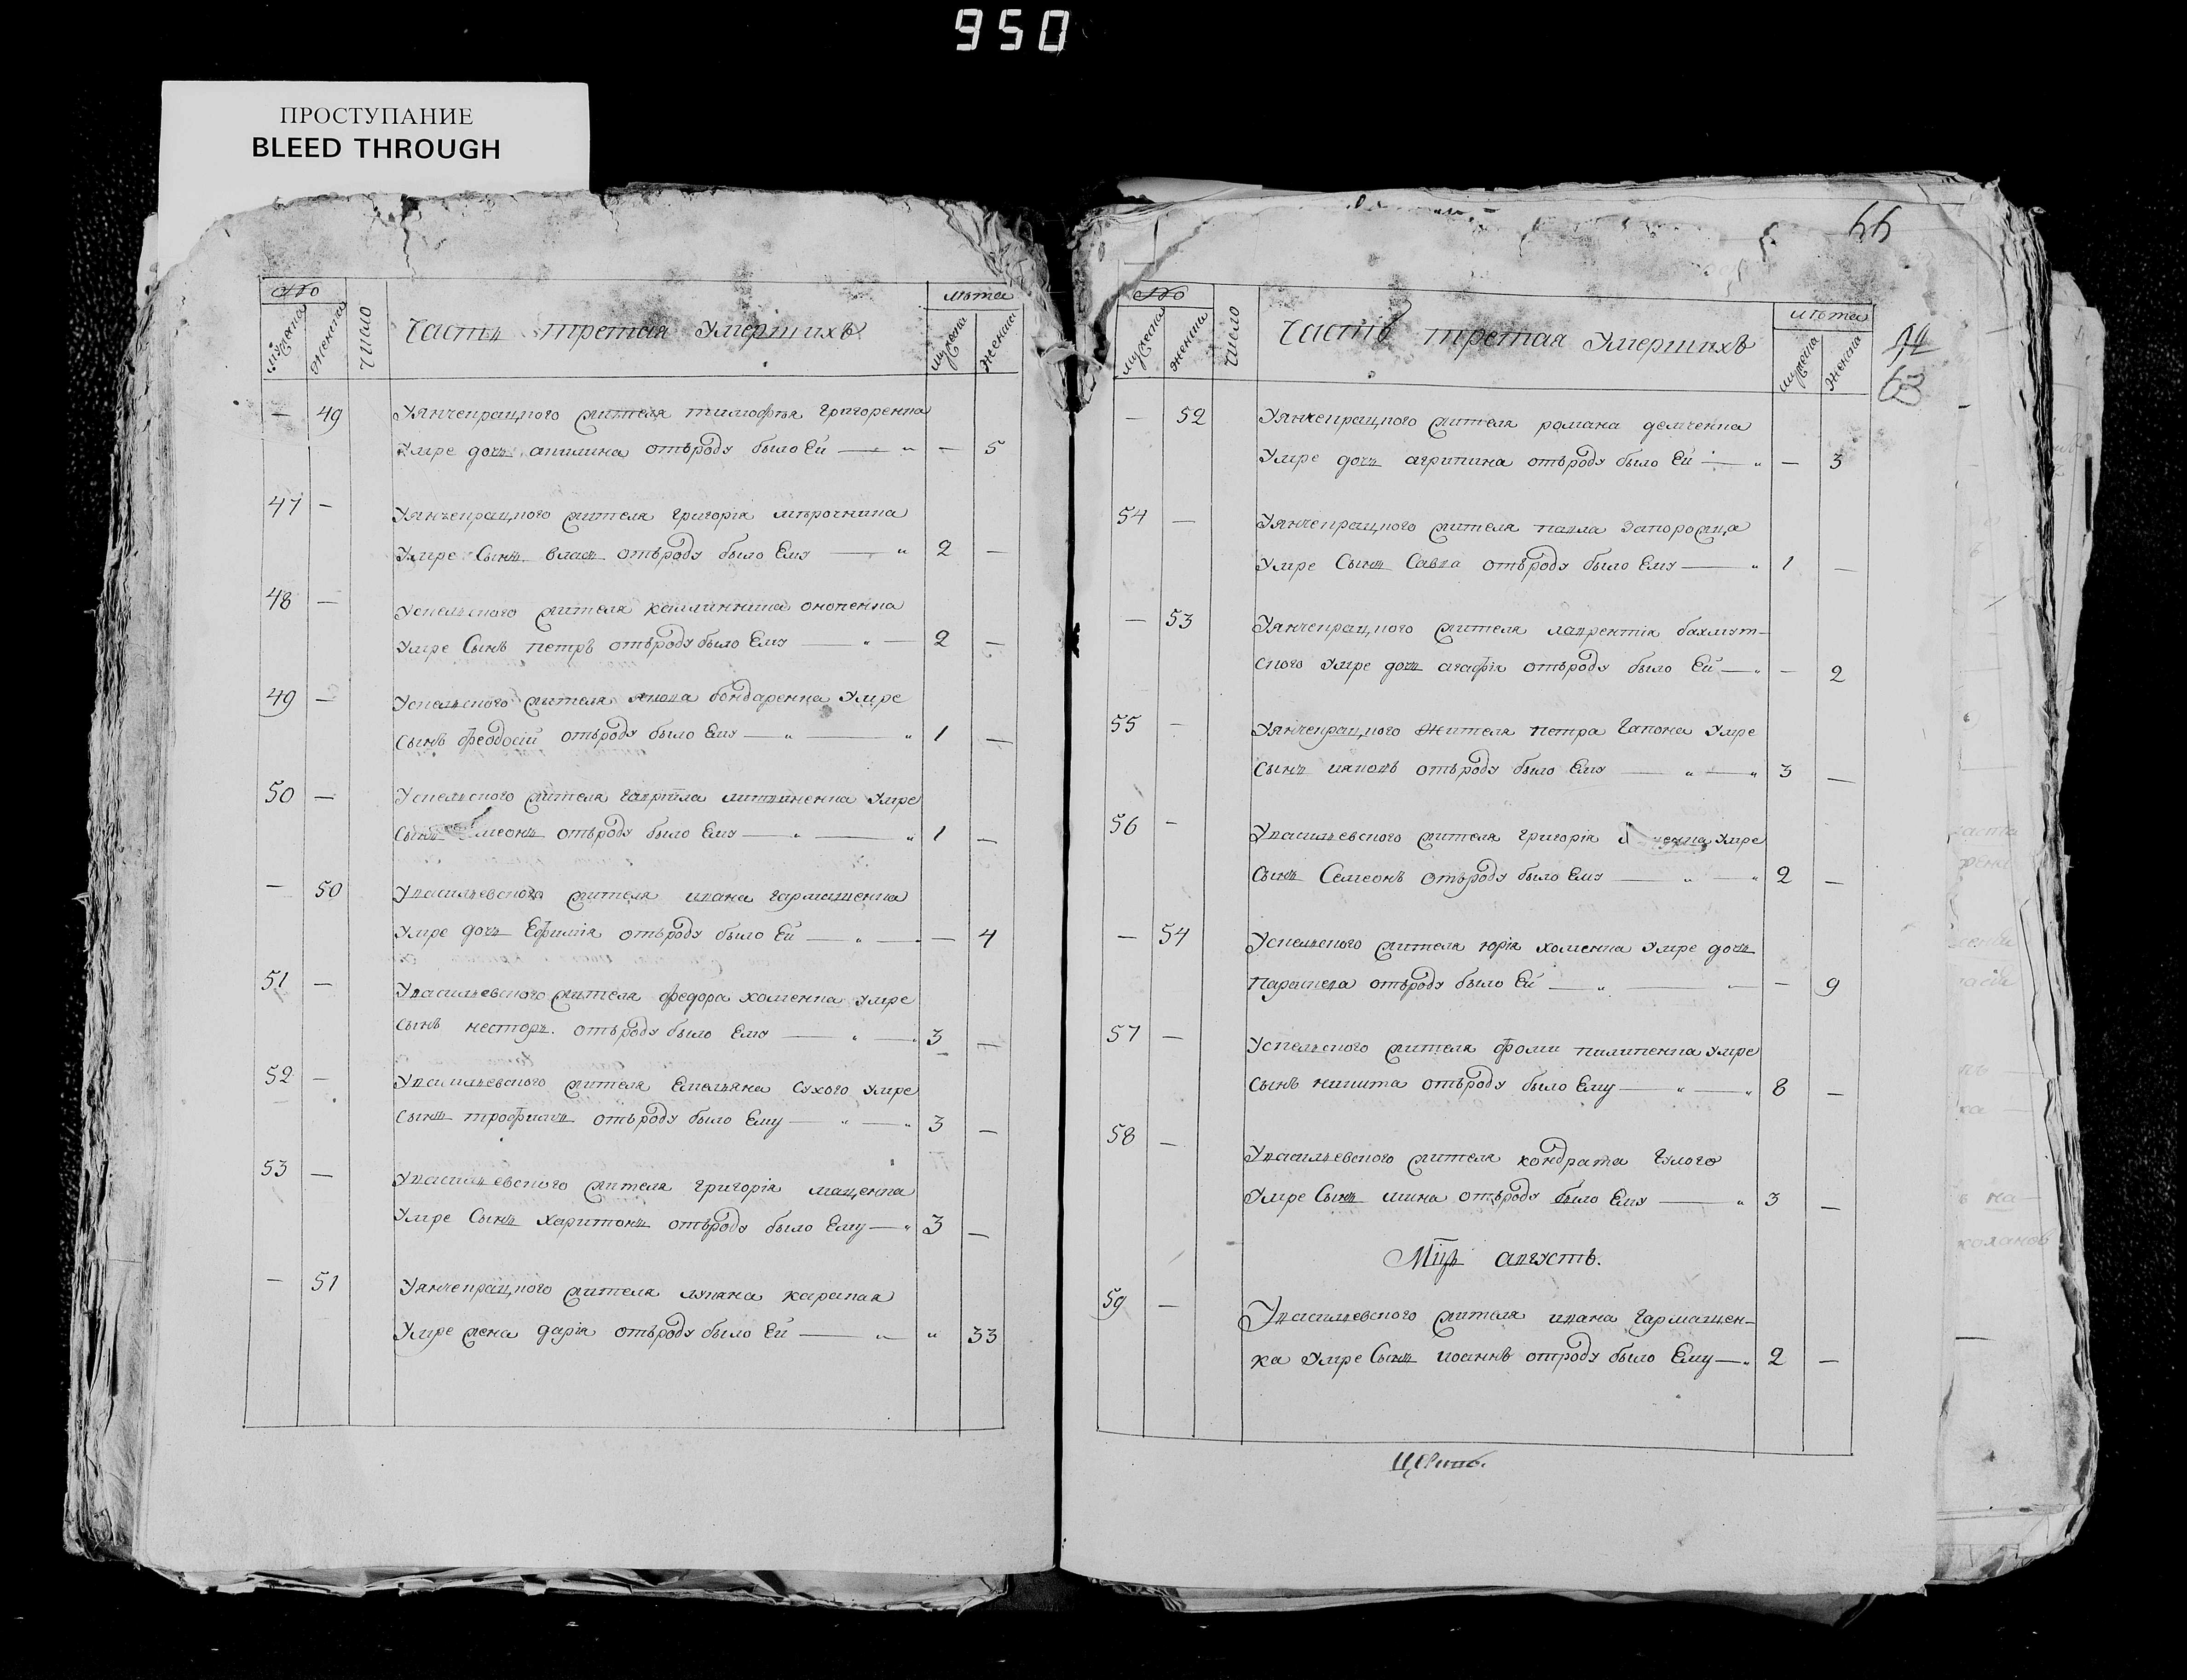 950
ПРОСТУПАНИЕ
BLEED THROUGH
№
мужеска
женска
Число
Часть третая Умершихъ
лѣта
мужеска
женска
— 49 Уянчепрацкого жителя тимофѣя григоренка
Умре дочь акилина отъроду было Ей — „ — 5
47 — Уянчепрацкого жителя григорія мѣрочника
Умре Сынъ власъ отъроду было Ему — „ 2 —
48 — Успельского жителя калинника онопенка
Умре Сынъ петръ отъроду было Ему — „ — 2 —
49 — Успельского жителя якова бондаренка Умре
Сынъ феодосій отъроду было Ему — „ — „ 1 —
50 — Успельского жителя гаврііла литвиненка Умре
Сынъ отъроду было Ему — „ — „ 1 —
— 50 Увасильевского жителя ивана гармашенка
Умре дочь Ефимія отъроду было Ей — „ — — 4
51 — Увасильевского жителя федора хоменка Умре
Сынъ несторъ. отъроду было Ему — „ — 3 —
52 — Увасильевского жителя Емельяна Сухого Умре
Сынъ трофимъ отъроду было Ему — „ — „ 3 —
53 — Увасильевского жителя григорія маценка
Умре Сынъ харитонъ отъроду было Ему — „ 3 —
— 51 Уянчепрацкого жителя лукяна карапая
Умре жена дарія отъроду было Ей — „ „ 33
66
63
№
мужеска
женска
Число
Часть третая Умершихъ
лѣта
мужеска
женска
— 52 Уянчепрацкого жителя романа демченка
Умре дочь агрипина отъроду было Ей — „ — 3
54 — Уянчепрацкого жителя павла Запорожца
Умре Сынъ Савва отъроду было Ему — „ 1 —
— 53 Уянчепрацкого жителя лаврентія бахмут-
ского Умре дочь агафія отъроду было Ей — „ — 2
55 — Уянчепрацкого жителя петра Гапона Умре
Сынъ иаковъ отъроду было Ему — „ — „ 3 —
56 — Увасильевского жителя григорія Умре
Сынъ Семеонъ отъроду было Ему — „ — „ 2 —
— 54 Успельского жителя юрія хоменка Умре дочь
Параскева отъроду было Ей — „ — — — 9
57 — Успельского жителя фоми пилипенка Умре
Сынъ никита отъроду было Ему — „ — „ 8 —
58 — Увасильевского жителя кондрата Гулого
Умре Сынъ мина отъроду было Ему — „ 3 —
Мцъ августъ.
59 — Увасильевского жителя ивана Гармашен-
ка Умре Сынъ иоаннъ отроду было Ему — „ 2 —